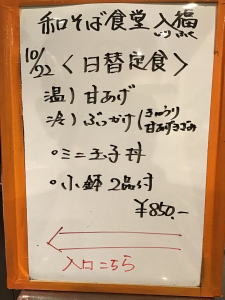 和そば食堂 入福
いりふく
10/22 〈日替定食〉
温) 甘あげ
冷) ぶっかけ(きゅうり
甘あげきざみ
・ミニ玉子丼
・小鉢2品付
¥850.-
入口こちら